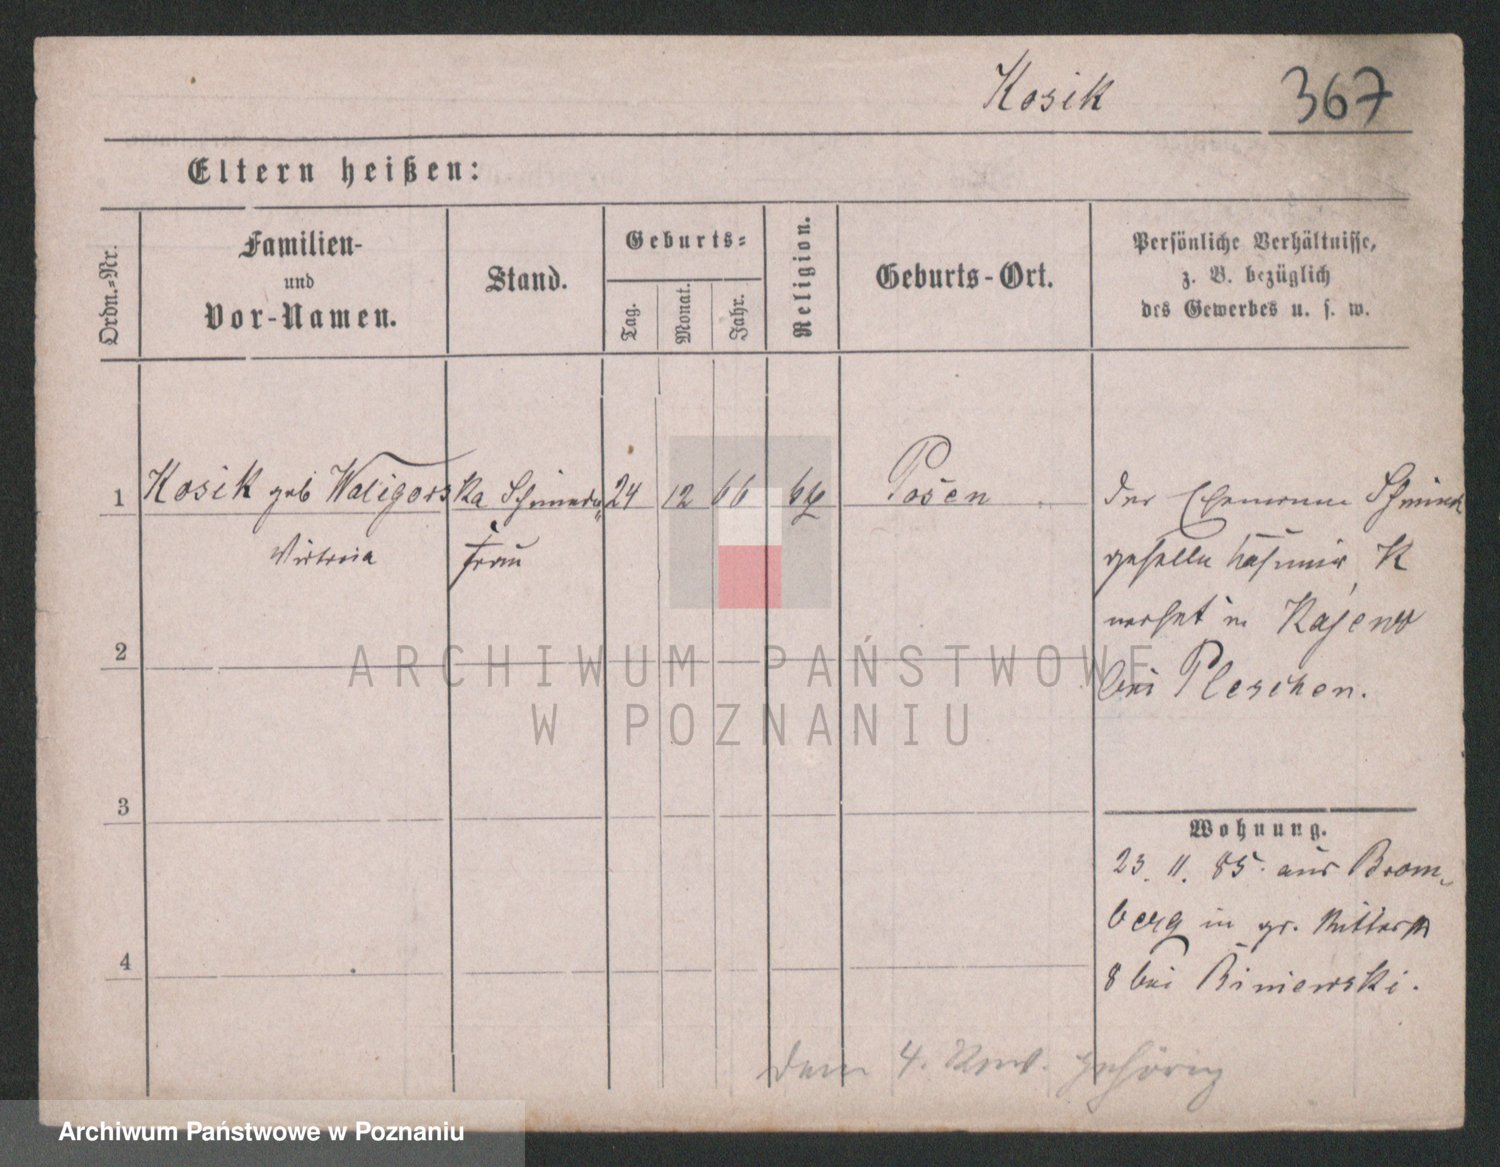 Kosik 367
Eltern heißen:
Ordn.-Nr.
Familien-
und
Vor-Namen.
Stand.
Geburts-
Tag.
Monat.
Jahr.
Religion.
Geburts-Ort.
Persönliche Verhältnisse,
z. B. bezüglich
des Gewerbes u. s. w.
1 Kosik geb Waligorska Schmiede- 24 12 66 Posen
Frau
Der Ehemann Schmied
geselle Kasimir K
wohnt in
bei Pleschen.
2
3
4
Wohnung.
23. 11. 85. aus Brom-
berg in gr. Ritterstr
8 bei Biniewski.
dem 4. gehörig
ARCHIWUM PAŃSTWOWE
W POZNANIU
Archiwum Państwowe w Poznaniu